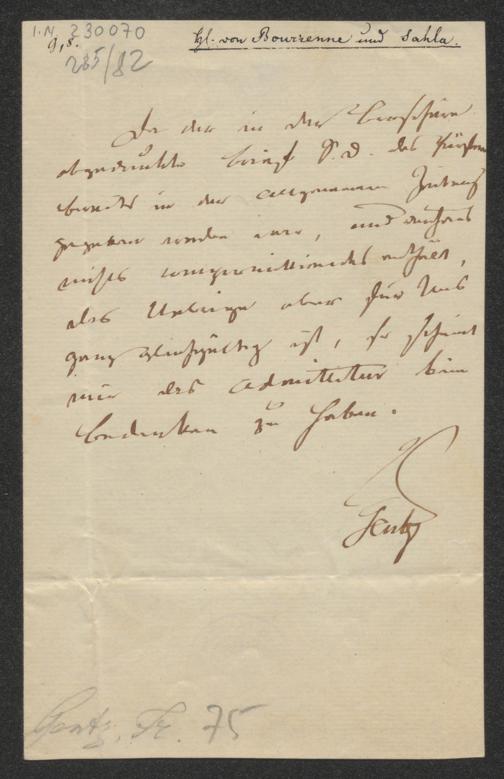 I.N. 230070
g, s.
285/82
Hl. von Bourrenne und Sahla.
Da der in der Broschüre
abgedruckte Brief S. D. des Fürsten
bereits in der Allgemeinen Zeitung
gegeben worden war, und durchaus
nichts compromittirendes enthält,
das Uebrige aber für Uns
ganz gleichgültig ist, so scheint
mir das Admittitur kein
Bedenken zu haben.
Gentz
Gentz, Fr. 75